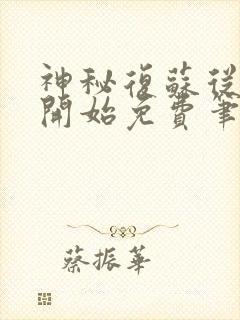 神秘復蘇從
開始免費筆
蔡振華